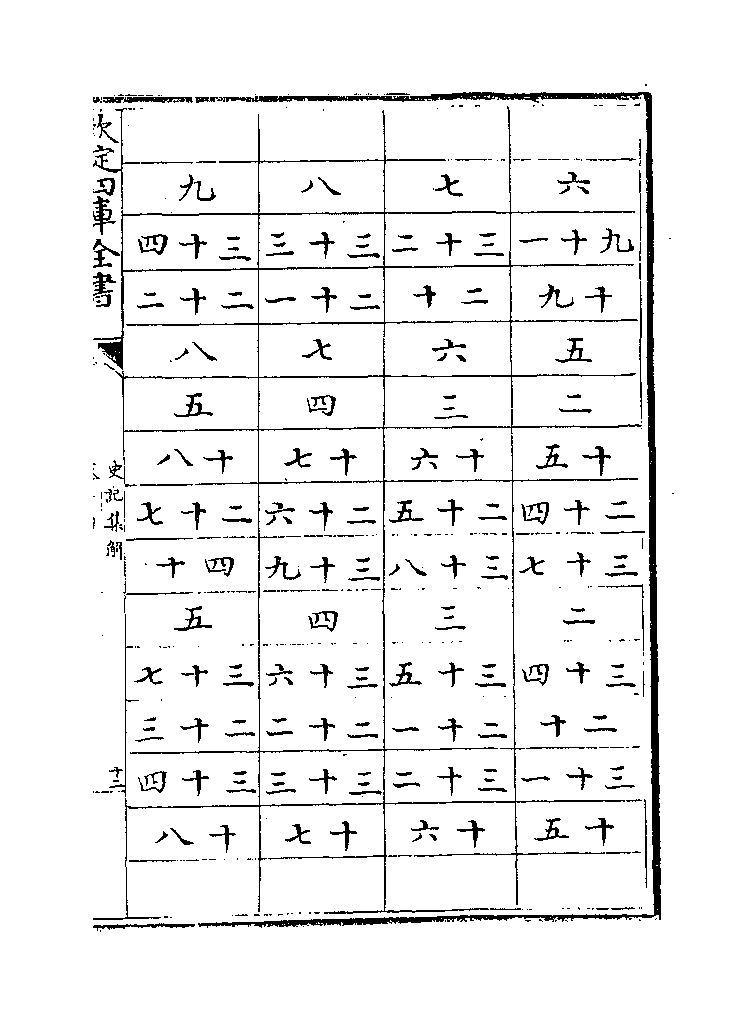 六 九十一 十九 五 二 十五 二十四 三十七 二 三十四 二十 三十一 十五
七 三十二 二十 六 三 十六 二十五 三十八 三 三十五 二十一 三十二 十六
八 三十三 二十一 七 四 十七 二十六 三十九 四 三十六 二十二 三十三 十七
九 三十四 二十二 八 五 十八 二十七 四十 五 三十七 二十三 三十四 十八
欽定四庫全書
史記集解
十三